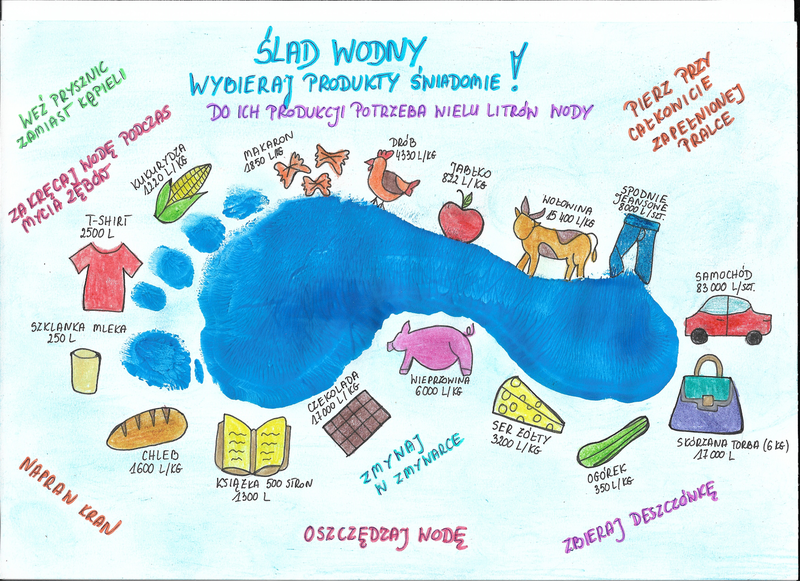 ŚLAD WODNY
WYBIERAJ PRODUKTY ŚWIADOMIE!
DO ICH PRODUKCJI POTRZEBA WIELU LITRÓW WODY
WEŹ PRYSZNIC
ZAMIAST KĄPIELI
ZAKRĘCAJ WODĘ PODCZAS
MYCIA ZĘBÓW
PIERZ PRZY
CAŁKOWICIE
ZAPEŁNIONEJ
PRALCE
KUKURYDZA
1220 L/KG
MAKARON
1850 L/KG
DRÓB
4330 L/KG
JABŁKO
822 L/KG
WOŁOWINA
15 400 L/KG
SPODNIE
JEANSOWE
8000 L/SZT.
T-SHIRT
2500 L
SAMOCHÓD
83 000 L/SZT.
SZKLANKA MLEKA
250 L
WIEPRZOWINA
6000 L/KG
CZEKOLADA
17000 L/KG
SER ŻÓŁTY
3200 L/KG
SKÓRZANA TORBA (6 KG)
17 000 L
CHLEB
1600 L/KG
KSIĄŻKA 500 STRON
1300 L
OGÓREK
350 L/KG
ZMYWAJ
W ZMYWARCE
NAPRAW KRAN
OSZCZĘDZAJ WODĘ
ZBIERAJ DESZCZÓWKĘ